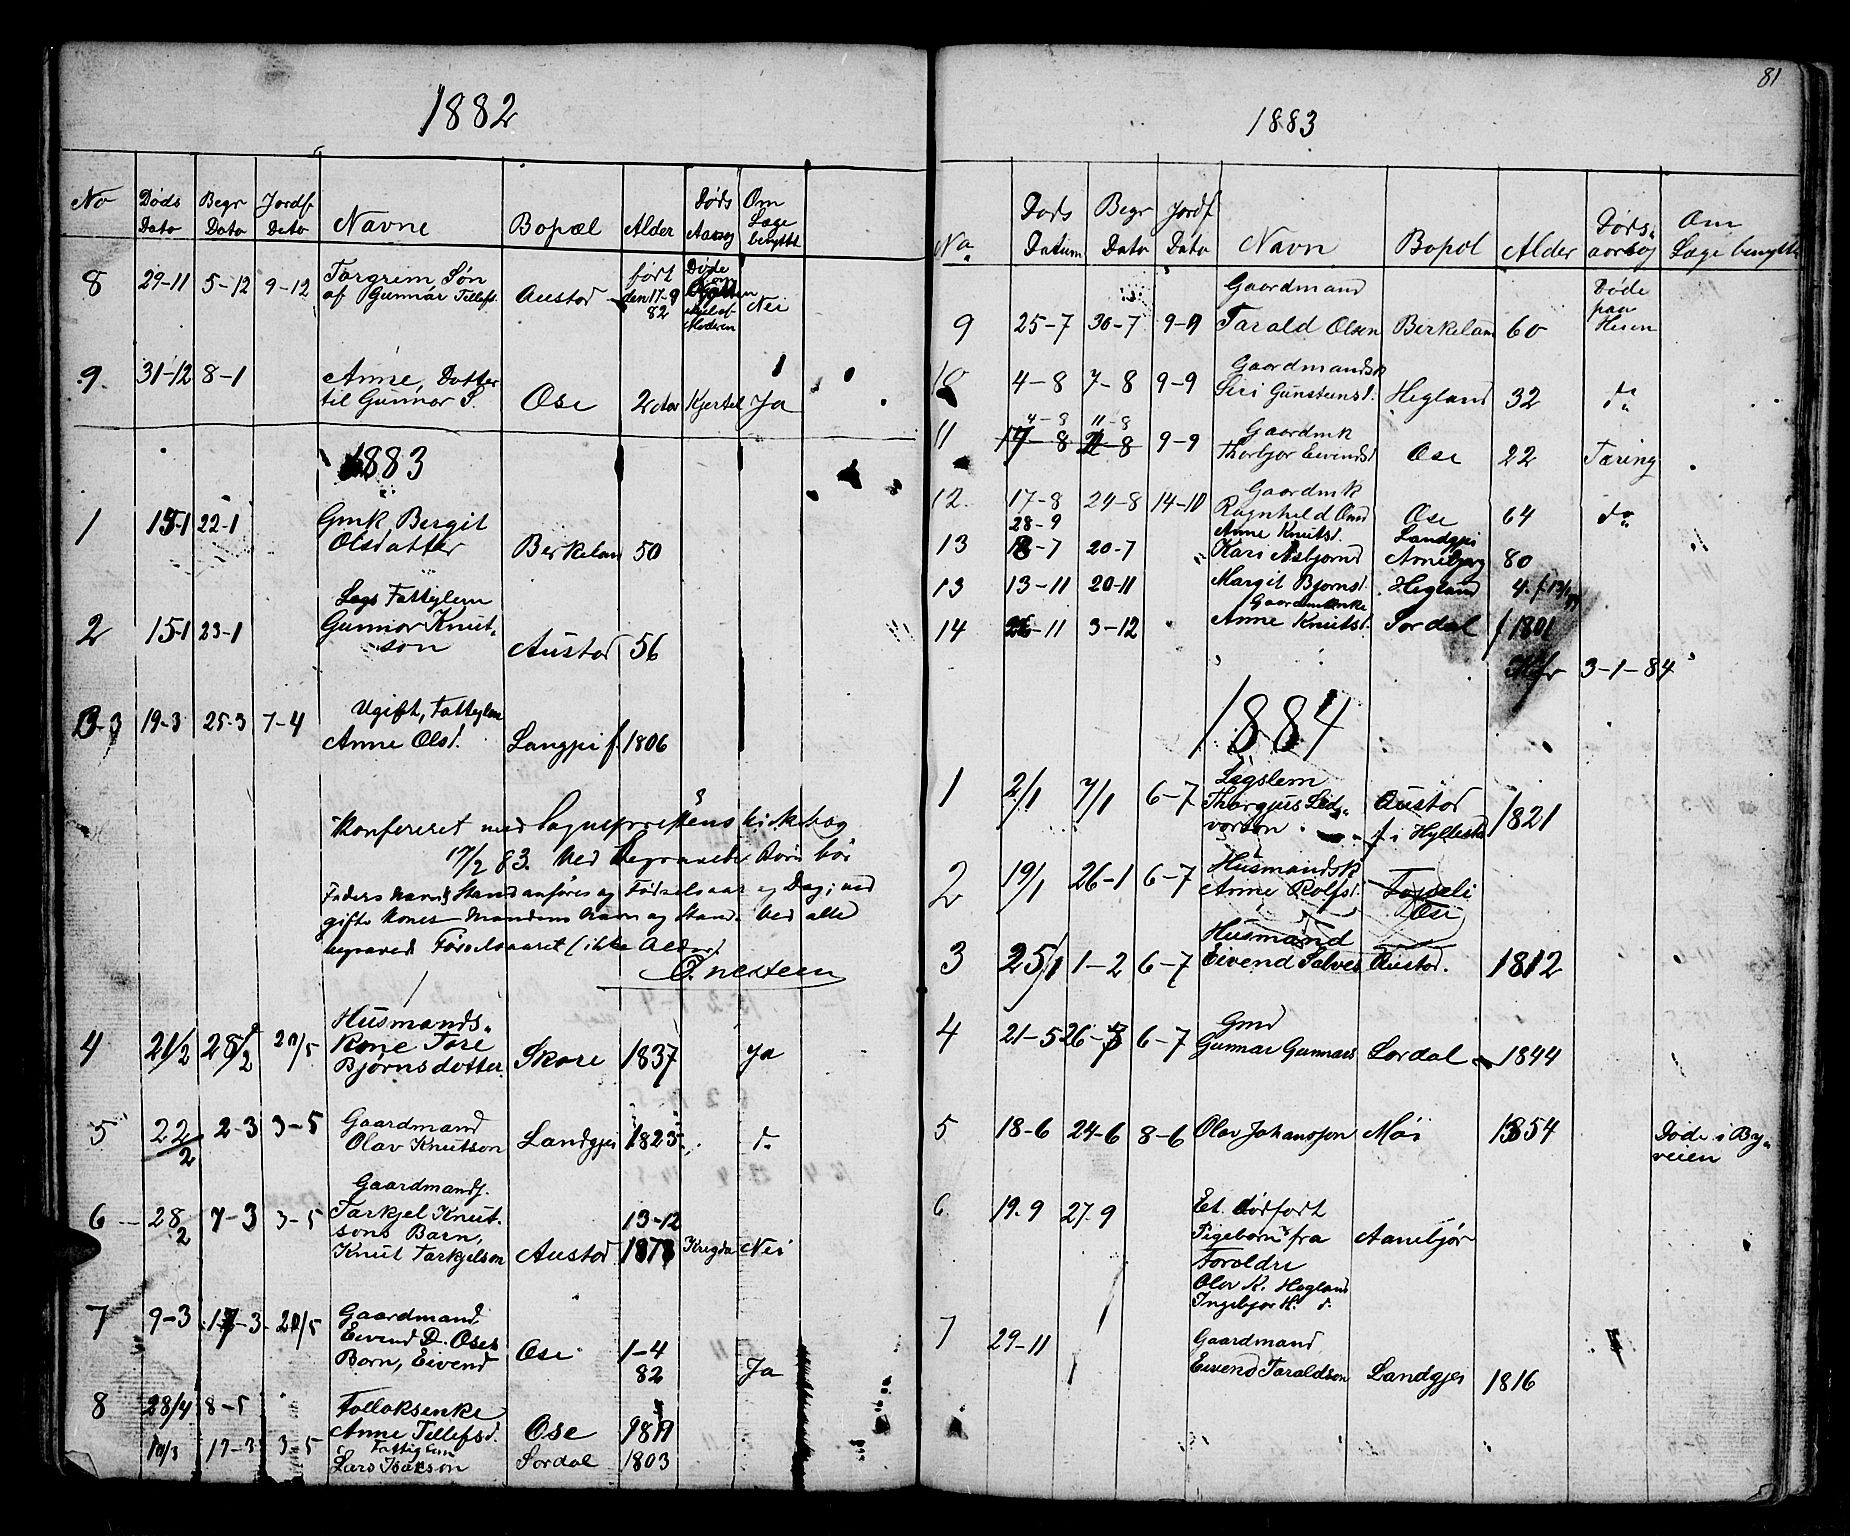 1882
No Døds Dato Begr Dato Jordf Dato Navne Bopæl Alder Døds Aarsag Om Læge benyttet
8 29-11 5-12 9-12 Targrim Søn
af Gunnar Tellefs. Austad født den 17-9 82 Døde Moderen Nei
9. 31-12 8-1 Anne, Datter
til Gunnar S. Ose 2 Kjertel Ja
1883
1 15-1 22-1 Gmk Bergit
Olsdatter Berkelan 50
2 15-1 23-1 Lægs Fattiglem
Gunnar Knut-
son Austad 56
3 19-3 25-3 7-4 Ugift, Fattiglem
Anne Olsd. Langjei f. 1806
Konfereret med Sognepræstens kirkebog
17/2 83. Ved Begravede Børn bør
Faders Navn & Stand anføres og Fødselsaar og Dag; ved
gifte Koner Mandens Navn og Stand. Ved alle
begraved Fødselsaaret (ikke Alder)
4 21/2 28/2 20/5 Husmands-
Kone Tore
Bjørnsdotter Skore 1837 Ja
5 22/2 2-3 3-5 Gaardmand
Olav Knutson Landgjei 1825 d.
6 28/2 7-3 3-5 Gaardmands.
Tarkjel Knut-
sons Barn,
Knut Tarkjelson Austad 13-12 1878 Nei
7 9-3 17-3 20/5 Gaardmand
Eivend D. Oses
Barn, Eivend Ose 1-4 82 Ja
8 28/4 8-5 Følloksenke
Anne Tellefsd. Ose
10/3 17-3 3-5 Fattiglem
Lars Isakson Sordal 1803
81
1883
No. Døds Datum Begr Dato Jordf Dato Navn Bopel Alder Døds-aarsag Om Læge benyttet
9 25-7 30-7 9-9 Gaardmand
Tarald Olsen Berkelan 60 Døde paa Heien
10 4-8 7-8 9-9 Gaardmandsk
Siri Gunstensd. Hegland 32 do
4-8 11-8
11 9-9 Gaardmk
Thorbjor Eivendsd Ose 22 Tæring
12. 17-8 24-8 14-10 Gaardmk
Ragnheld Omd Ose 64 do
28-9 Anne Knutsd. Landgjei
13 18-7 20-7 Kari Asbjornd Amebjorg 80
13 13-11 20-11 Margit Bjornsd. Hegland 4.
14 26-11 3-12 Gaardmenke
Anne Knutsd. Sordal f 1801
Kfr 3-1-84
1884
1 2/1 7/1 6-7 Lægslem
Thorgjus Lid-
vorson Austad f. i Hyllestad 1821
2 19/1 26-1 6-7 Husmandsk
Anne Rolfsd. Ose
3 25/1 1-2 6-7 Husmand
Eivend Salves Austad. 1812
4 21-5 26-5 6-7 Gmd
Gunnar Gunnars Sordal 1844
5 18-6 24-6 8-6 Olav Johansson Moi 1854 Døde i By-
veien
6 19.9 27.9 Et dødfødt
Pigebørn fra Aanebjør
Foroldre
Olav K. Hegland
Ingebjør H. d.
7 29-11 Gaardmand
Eivend Taraldson Landgjei 1816